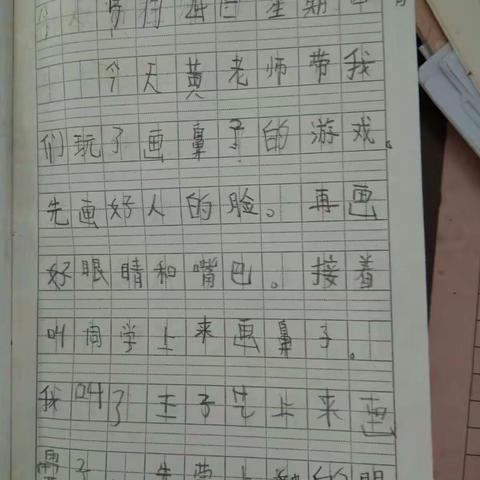 月24日 星期
今天黄老师带我
们玩了画鼻子的游戏。
先画好人的脸。再画
好眼睛和嘴巴。接着
叫同学上来画鼻子。
我叫了王子先上来画
鼻子。